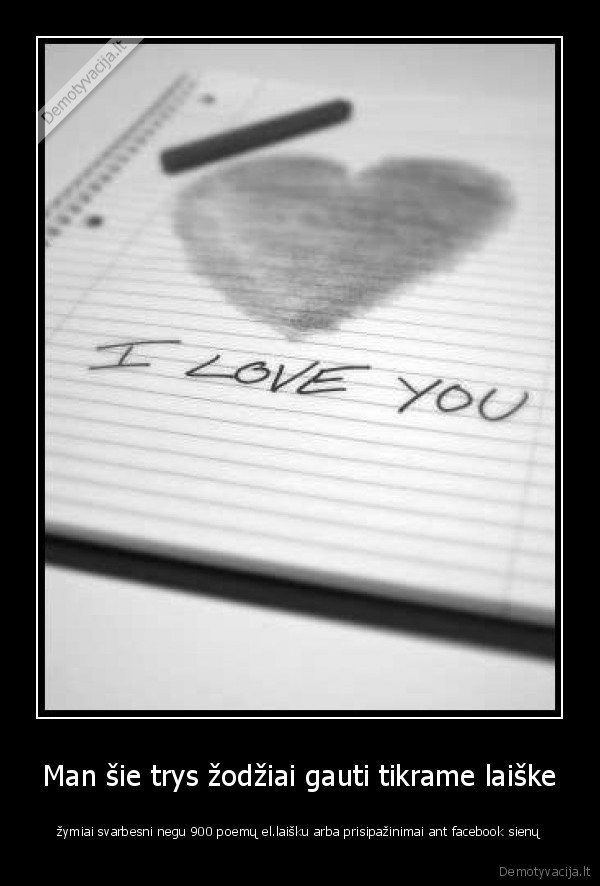 Demotyvacija.lt
I LOVE YOU
Man šie trys žodžiai gauti tikrame laiške
žymiai svarbesni negu 900 poemų el.laišku arba prisipažinimai ant facebook sienų
Demotyvacija.lt